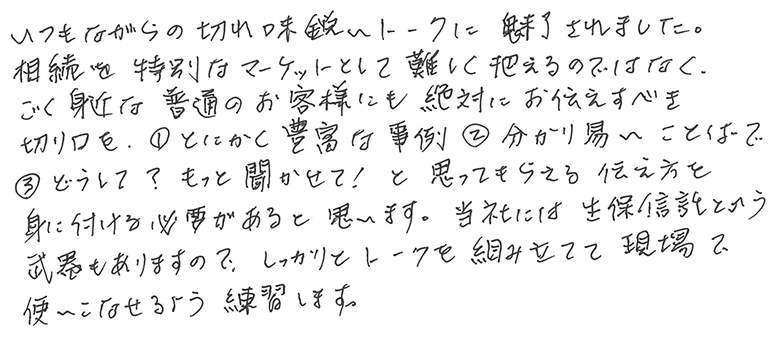 いつもながらの切れ味鋭いトークに魅了されました。
相続を特別なマーケットとして難しく捉えるのではなく、
ごく身近な普通のお客様にも絶対にお伝えすべき
切り口を、①とにかく豊富な事例②分かり易いことばで
③どうして？もっと聞かせて！と思ってもらえる伝え方を
身に付ける必要があると思います。当社には生保信託という
武器もありますので、しっかりとトークを組み立てて現場で
使いこなせるよう練習します。